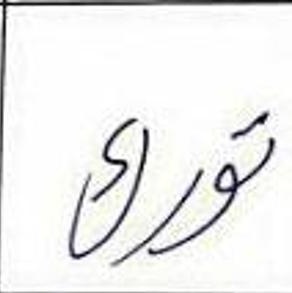 تورای